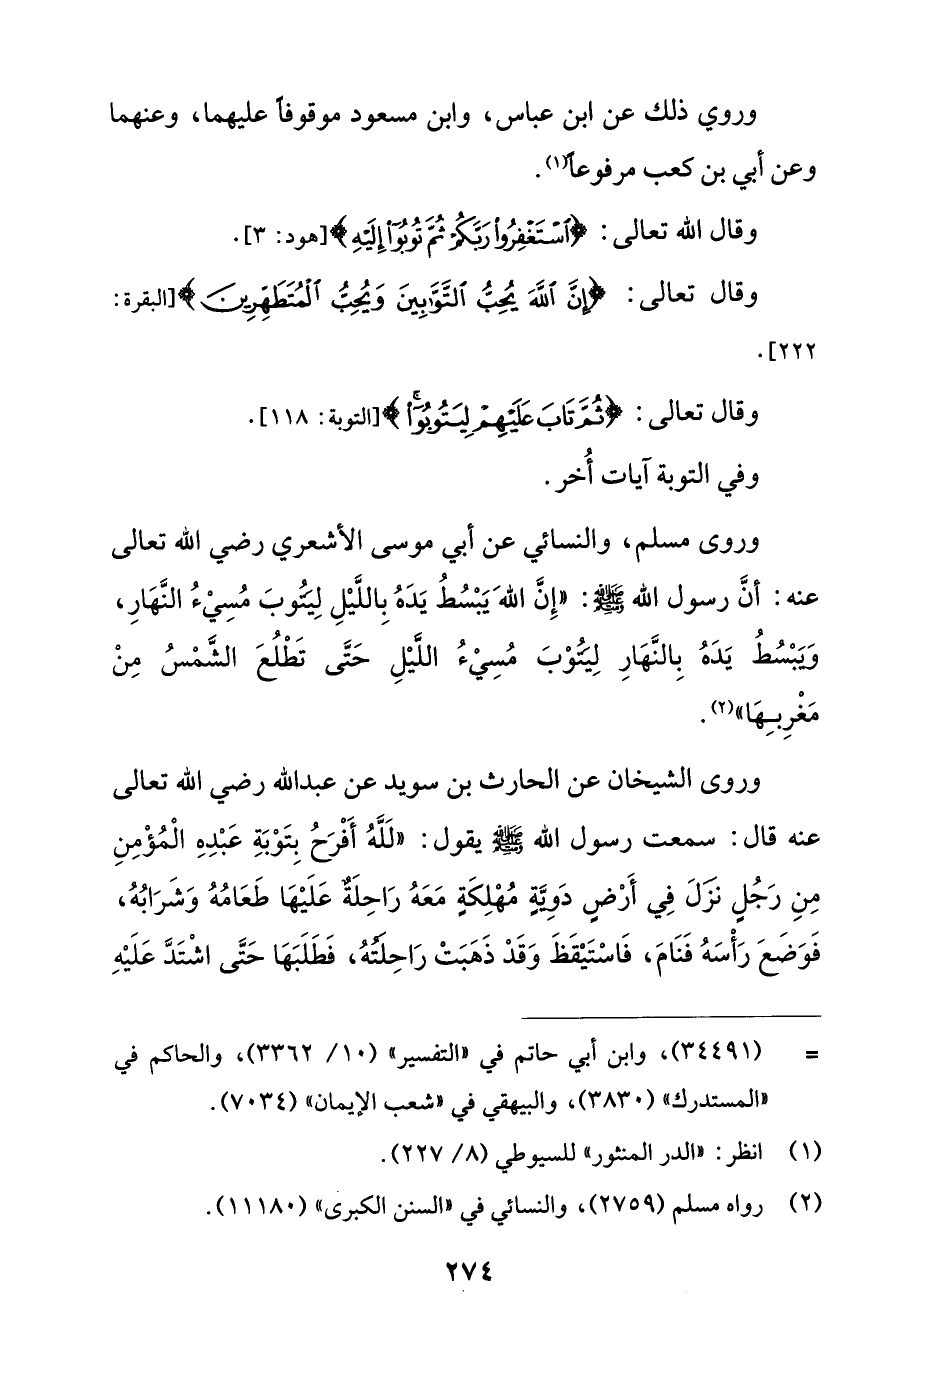 وروي ذلك عن ابن عباس، وابن مسعود موقوفاً عليهما، وعنهما
وعن أبي بن كعب مرفوعاً(١).
وقال الله تعالى: ﴿ٱسْتَغْفِرُوا۟ رَبَّكُمْ ثُمَّ تُوبُوٓا۟ إِلَيْهِ﴾[هود: ٣].
وقال تعالى: ﴿إِنَّ ٱللَّهَ يُحِبُّ ٱلتَّوَّٰبِينَ وَيُحِبُّ ٱلْمُتَطَهِّرِينَ﴾[البقرة:
٢٢٢].
وقال تعالى: ﴿ثُمَّ تَابَ عَلَيْهِمْ لِيَتُوبُوٓا۟ ۚ﴾[التوبة: ١١٨].
وفي التوبة آيات أُخر.
وروى مسلم، والنسائي عن أبي موسى الأشعري رضي الله تعالى
عنه: أنَّ رسول الله ﷺ: «إِنَّ اللهَ يَبْسُطُ يَدَهُ بِاللَّيْلِ لِيَتُوبَ مُسِيْءُ النَّهَارِ،
وَيَبْسُطُ يَدَهُ بِالنَّهَارِ لِيَتُوْبَ مُسِيْءُ اللَّيْلِ حَتَّى تَطْلُعَ الشَّمْسُ مِنْ
مَغْرِبِهَا»(٢).
وروى الشيخان عن الحارث بن سويد عن عبدالله رضي الله تعالى
عنه قال: سمعت رسول الله ﷺ يقول: «لَلَّهُ أَفْرَحُ بِتَوْبَةِ عَبْدِهِ الْمُؤْمِنِ
مِنِ رَجُلٍ نَزَلَ فِي أَرْضٍ دَوِيَّةٍ مُهْلِكَةٍ مَعَهُ رَاحِلَةٌ عَلَيْهَا طَعَامُهُ وَشَرَابُهُ،
فَوَضَعَ رَأْسَهُ فَنَامَ، فَاسْتَيْقَظَ وَقَدْ ذَهَبَتْ رَاحِلَتُهُ، فَطَلَبَهَا حَتَّى اشْتَدَّ عَلَيْهِ
= (٣٤٤٩١)، وابن أبي حاتم في «التفسير» (١٠/ ٣٣٦٢)، والحاكم في
«المستدرك» (٣٨٣٠)، والبيهقي في «شعب الإيمان» (٧٠٣٤).
(١) انظر: «الدر المنثور» للسيوطي (٨/ ٢٢٧).
(٢) رواه مسلم (٢٧٥٩)، والنسائي في «السنن الكبرى» (١١١٨٠).
٢٧٤